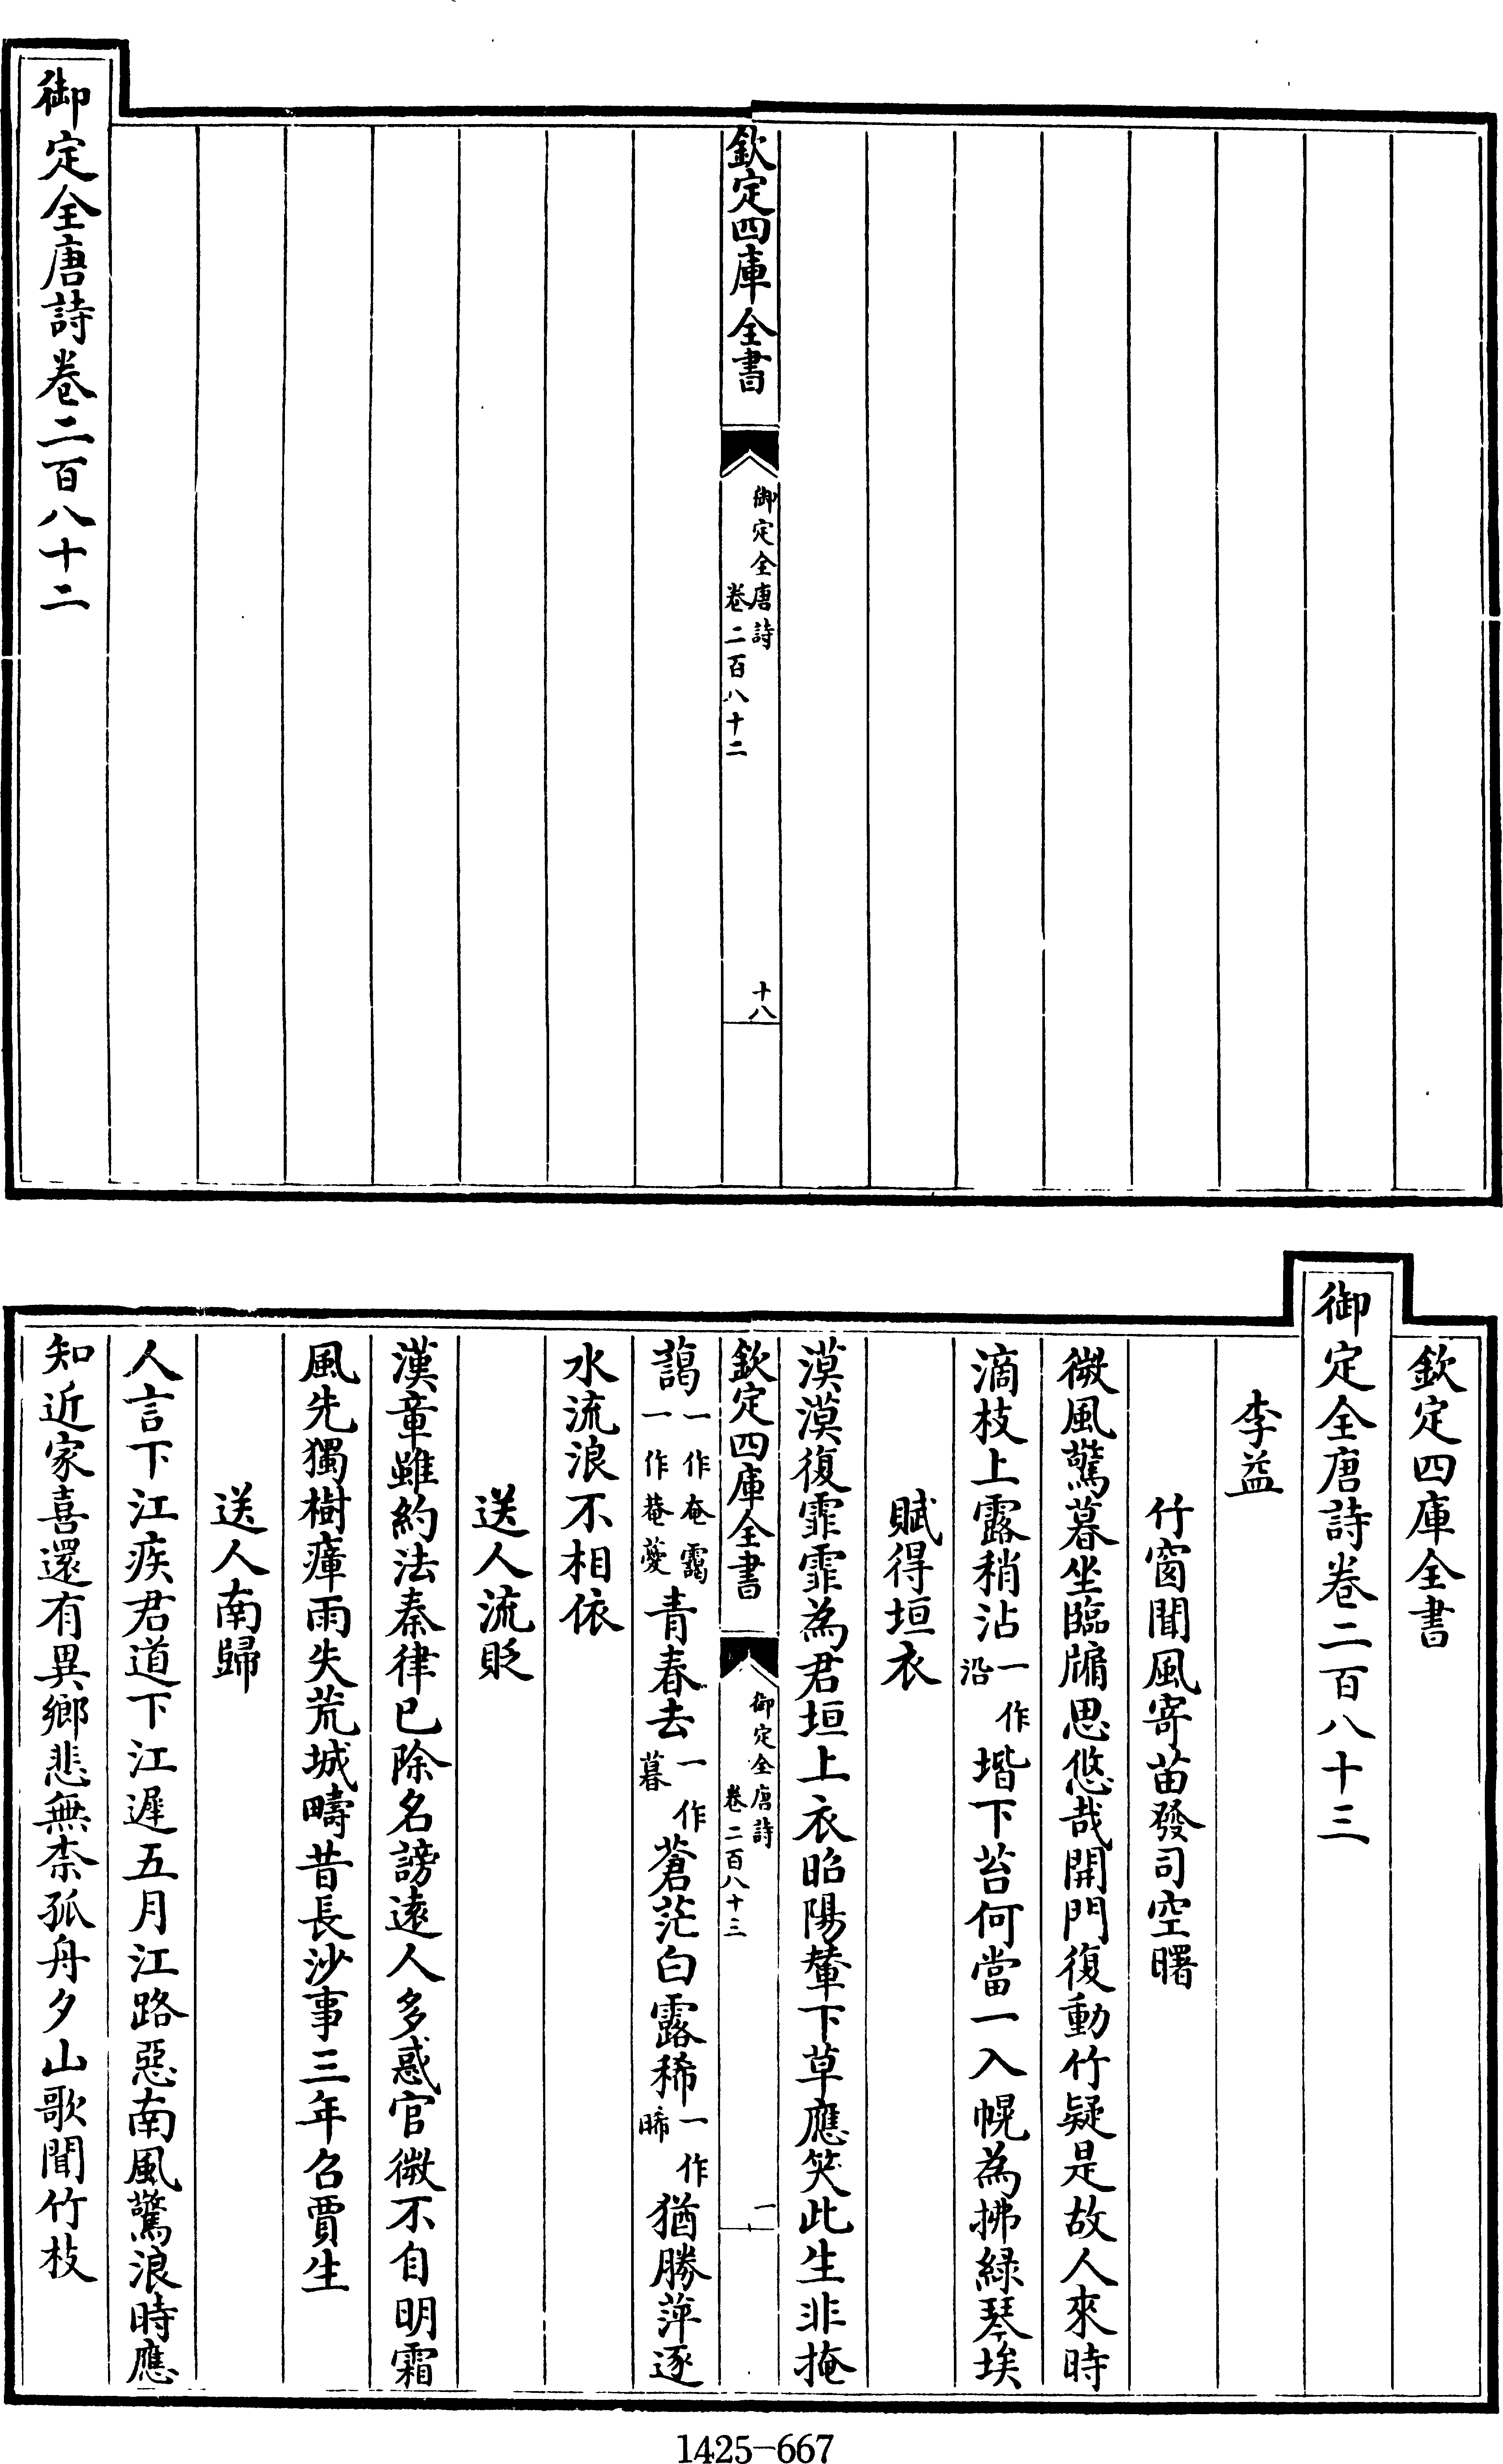 欽定四庫全書
御定全唐詩
卷二百八十二
十八
御定全唐詩卷二百八十二
欽定四庫全書
御定全唐詩卷二百八十三
李益
竹窗聞風寄苗發司空曙
微風驚暮坐臨牖思悠哉開門復動竹疑是故人來時
滴枝上露稍沾一作沿堦下苔何當一入幌為拂緑琴埃
賦得垣衣
漠漠復霏霏為君垣上衣昭陽輦下草應笑此生非掩
欽定四庫全書
御定全唐詩
卷二百八十三
一
藹一作奄靄一作菴薆青春去一作暮蒼茫白露稀一作晞猶勝萍逐
水流浪不相依
送人流貶
漢章雖約法秦律已除名謗遠人多惑官微不自明霜
風先獨樹瘴雨失荒城疇昔長沙事三年召賈生
送人南歸
人言下江疾君道下江遲五月江路惡南風驚浪時應
知近家喜還有異鄉悲無柰孤舟夕山歌聞竹枝
1425-667